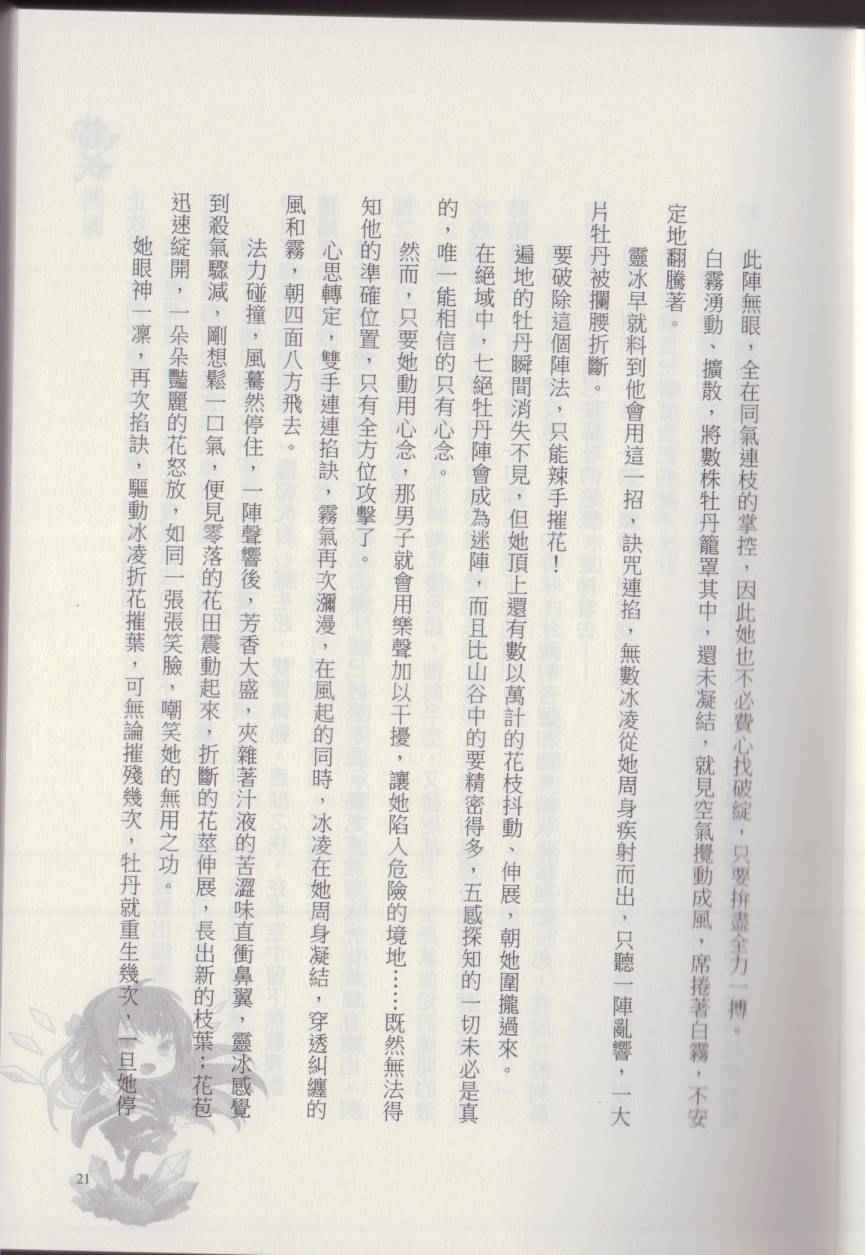 此陣無眼，全在同氣連枝的掌控，因此她也不必費心找破綻，只要拚盡全力一搏。
白霧湧動、擴散，將數株牡丹籠罩其中，還未凝結，就見空氣攪動成風，席捲著白霧，不安
定地翻騰著。
靈冰早就料到他會用這一招，訣咒連掐，無數冰凌從她周身疾射而出，只聽一陣亂響，一大
片牡丹被攔腰折斷。
要破除這個陣法，只能辣手摧花！
遍地的牡丹瞬間消失不見，但她頂上還有數以萬計的花枝抖動、伸展，朝她圍攏過來。
在絕域中，七絕牡丹陣會成為迷陣，而且比山谷中的要精密得多，五感探知的一切未必是真
的，唯一能相信的只有心念。
然而，只要她動用心念，那男子就會用樂聲加以干擾，讓她陷入危險的境地……既然無法得
知他的準確位置，只有全方位攻擊了。
心思轉定，雙手連連掐訣，霧氣再次瀰漫，在風起的同時，冰凌在她周身凝結，穿透糾纏的
風和霧，朝四面八方飛去。
法力碰撞，風驀然停住，一陣聲響後，芳香大盛，夾雜著汁液的苦澀味直衝鼻翼，靈冰感覺
到殺氣驟減，剛想鬆一口氣，便見零落的花田震動起來，折斷的花莖伸展，長出新的枝葉；花苞
迅速綻開，一朵朵豔麗的花怒放，如同一張張笑臉，嘲笑她的無用之功。
她眼神一凜，再次掐訣，驅動冰凌折花摧葉，可無論摧殘幾次，牡丹就重生幾次，一旦她停
21